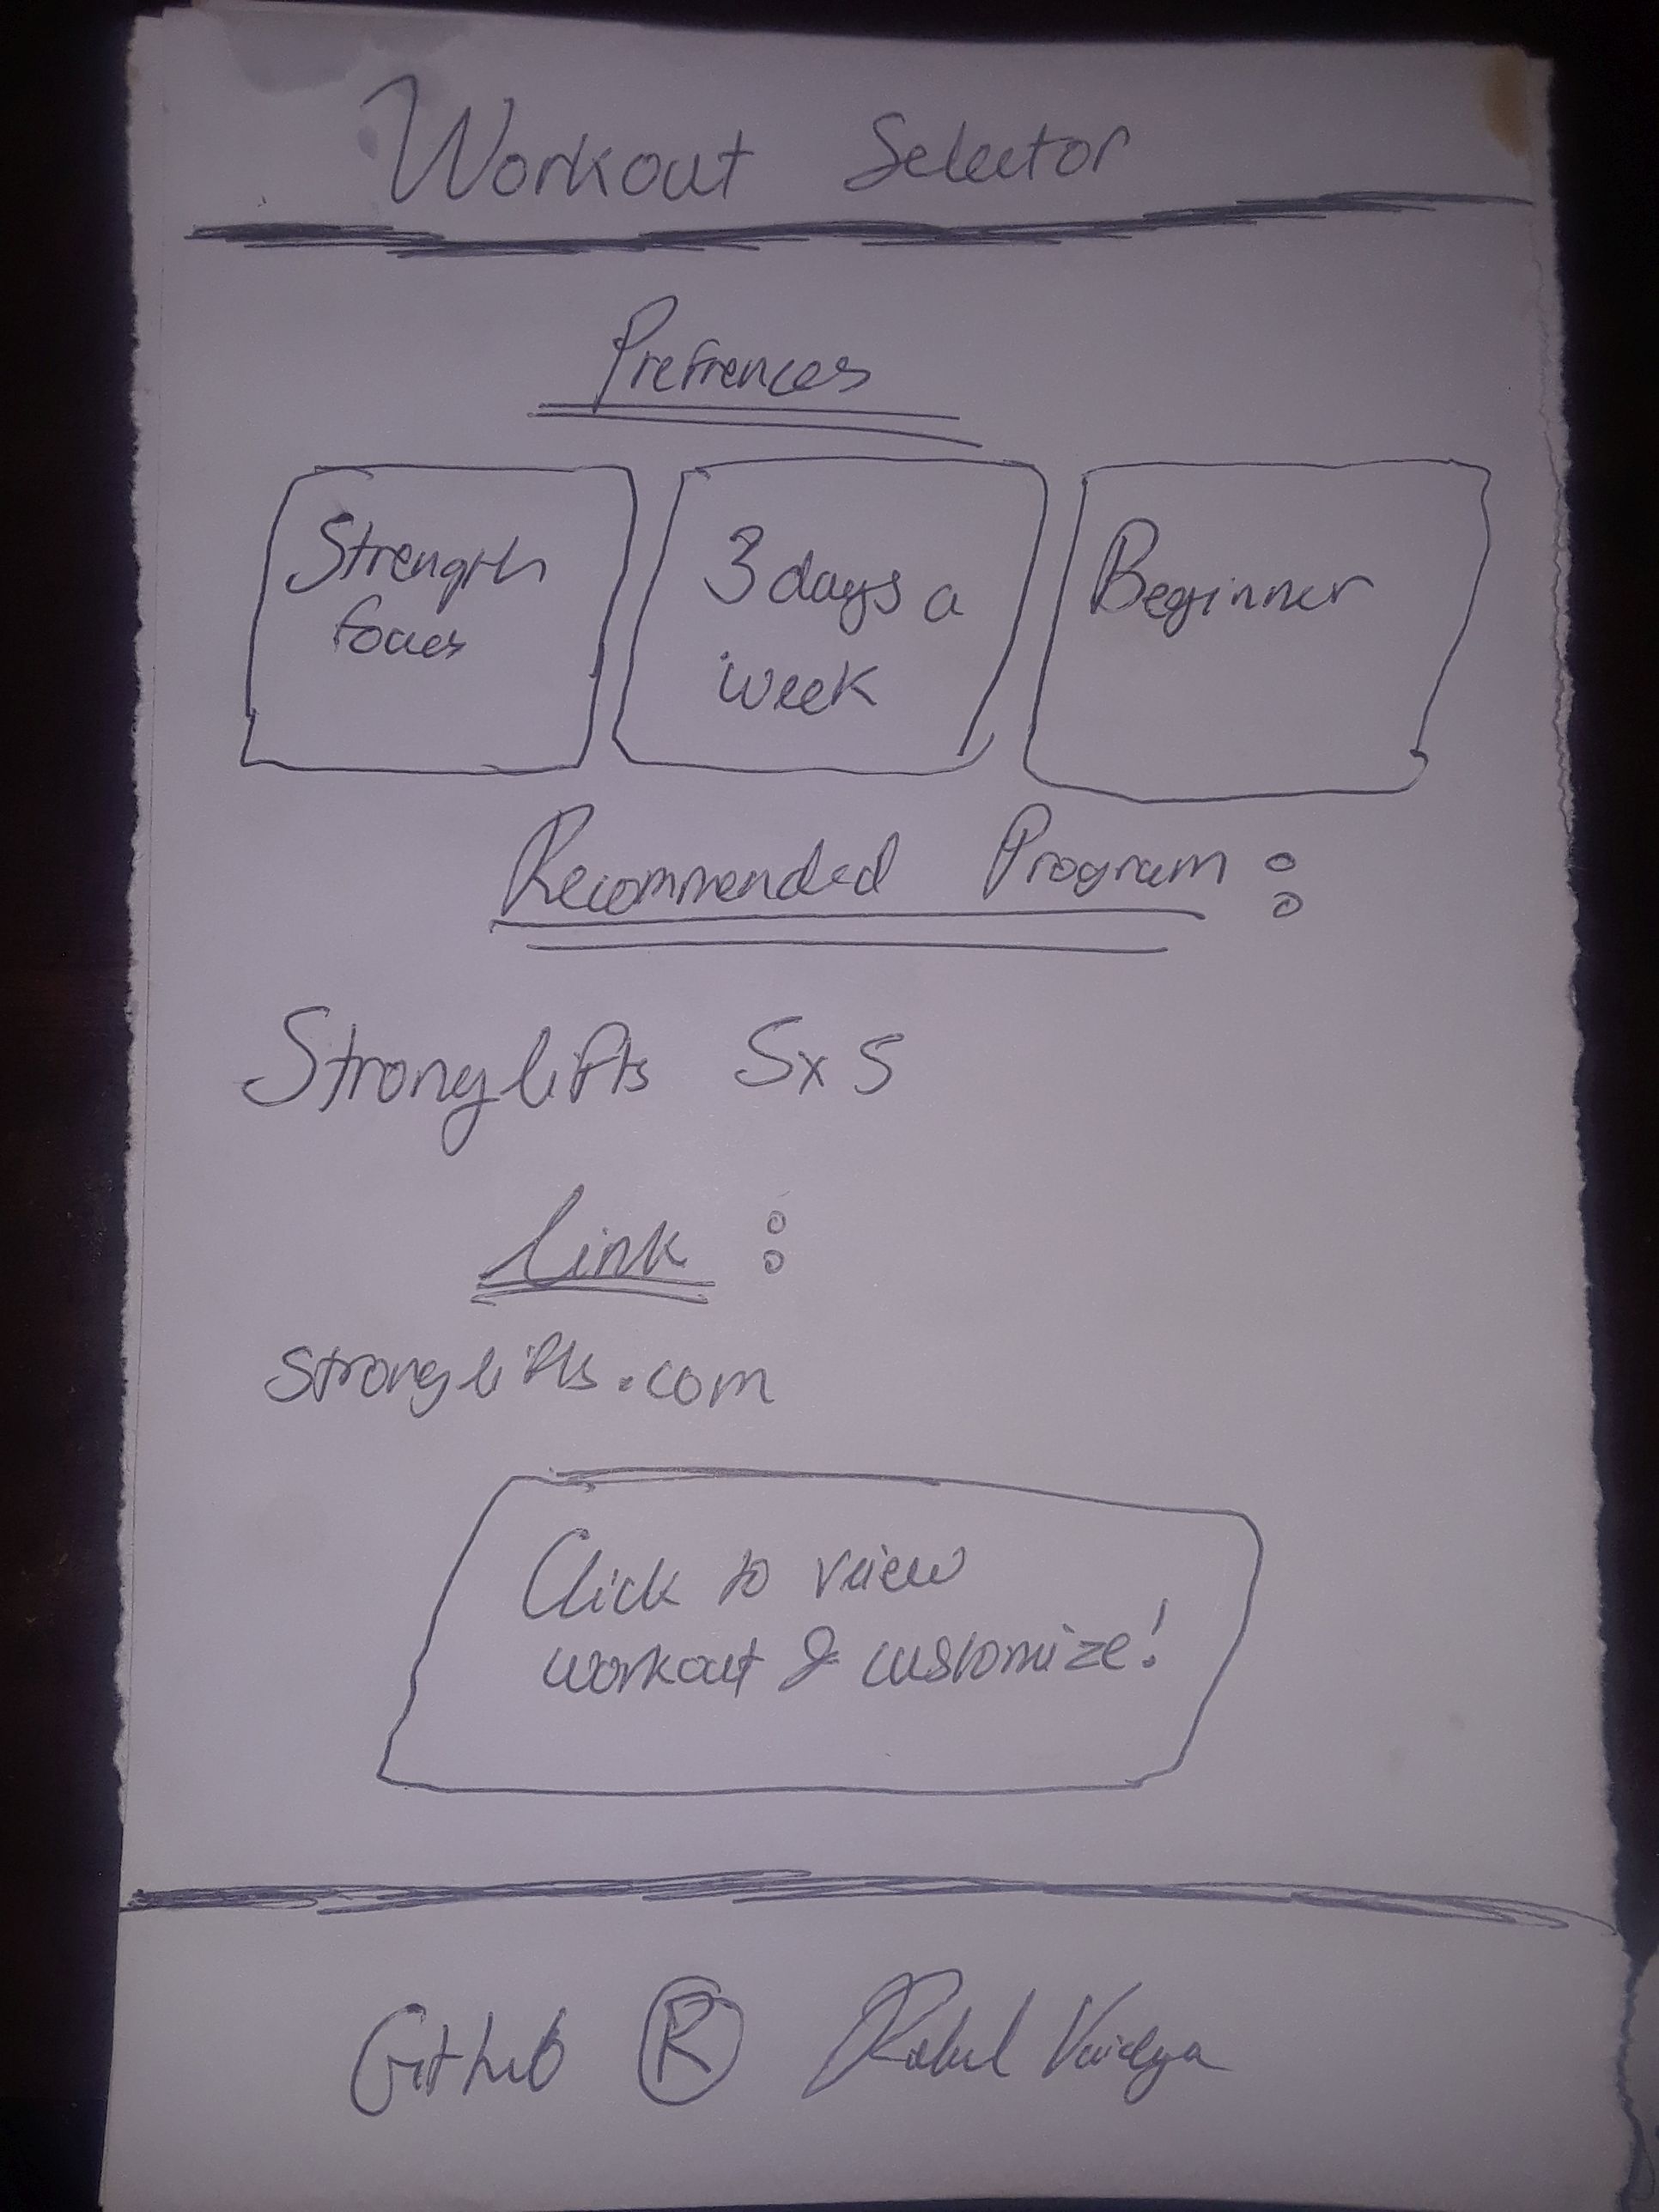 Workout Selector
Prefrences
Strength
focus
3 days a
week
Beginner
Recommended Program :
Stronglifts 5x5
Link :
stronglifts.com
Click to view
workout & customize!
Github ® Rahul Vaidya